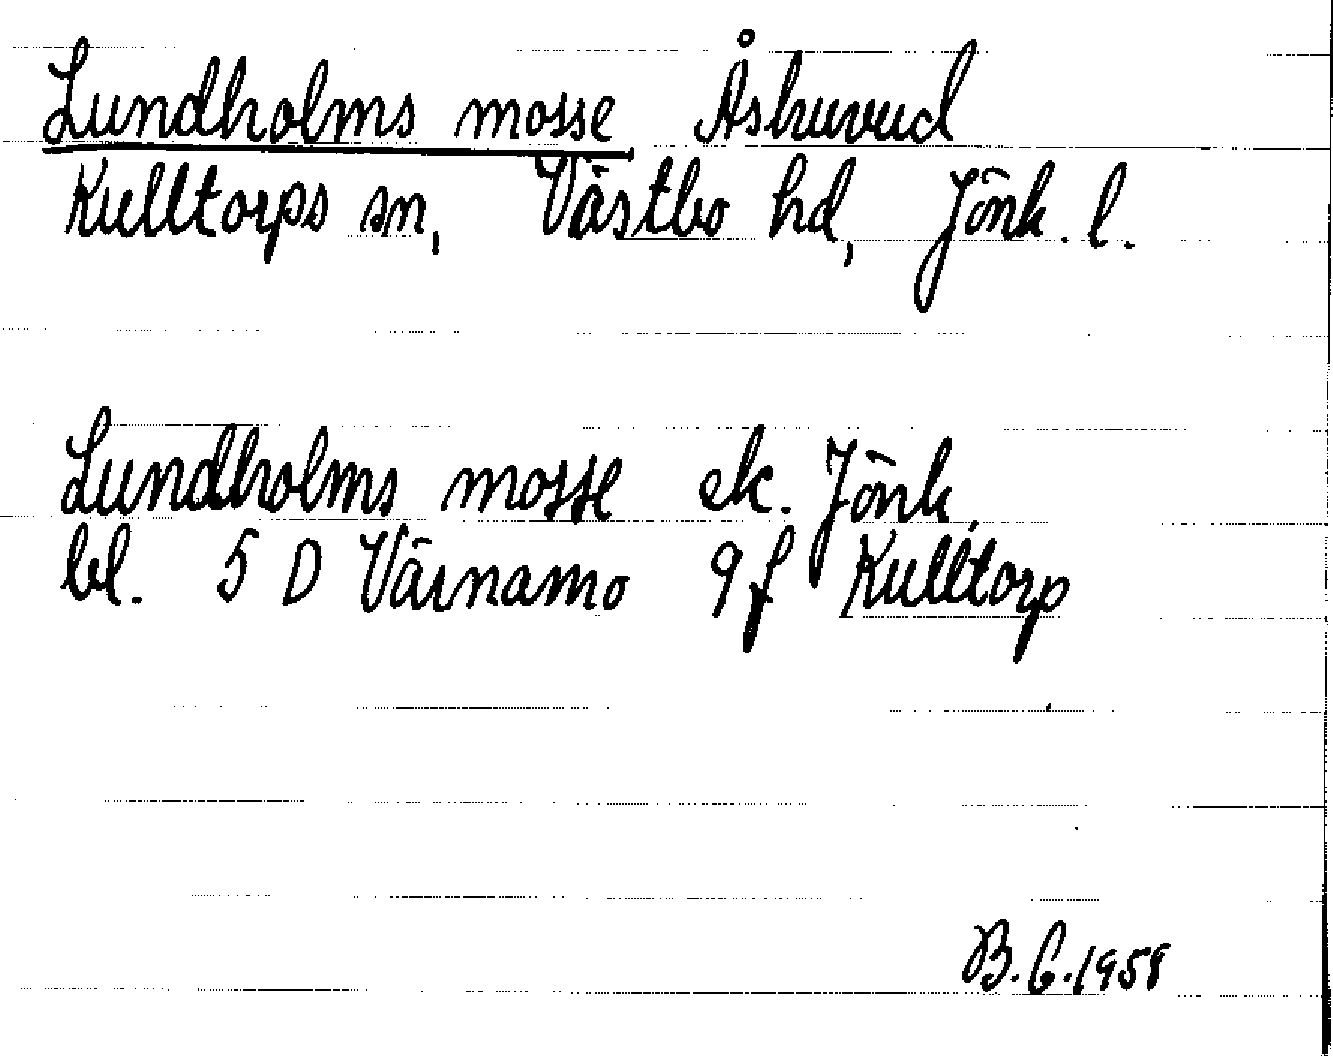 Lundholms mosse Åshuvud
Kulltorps sn, Västbo hd, Jönk. l.
Lundholms mosse ek. Jönk.
bl. 5 D Värnamo 9 f Kulltorp
B. G. 1958